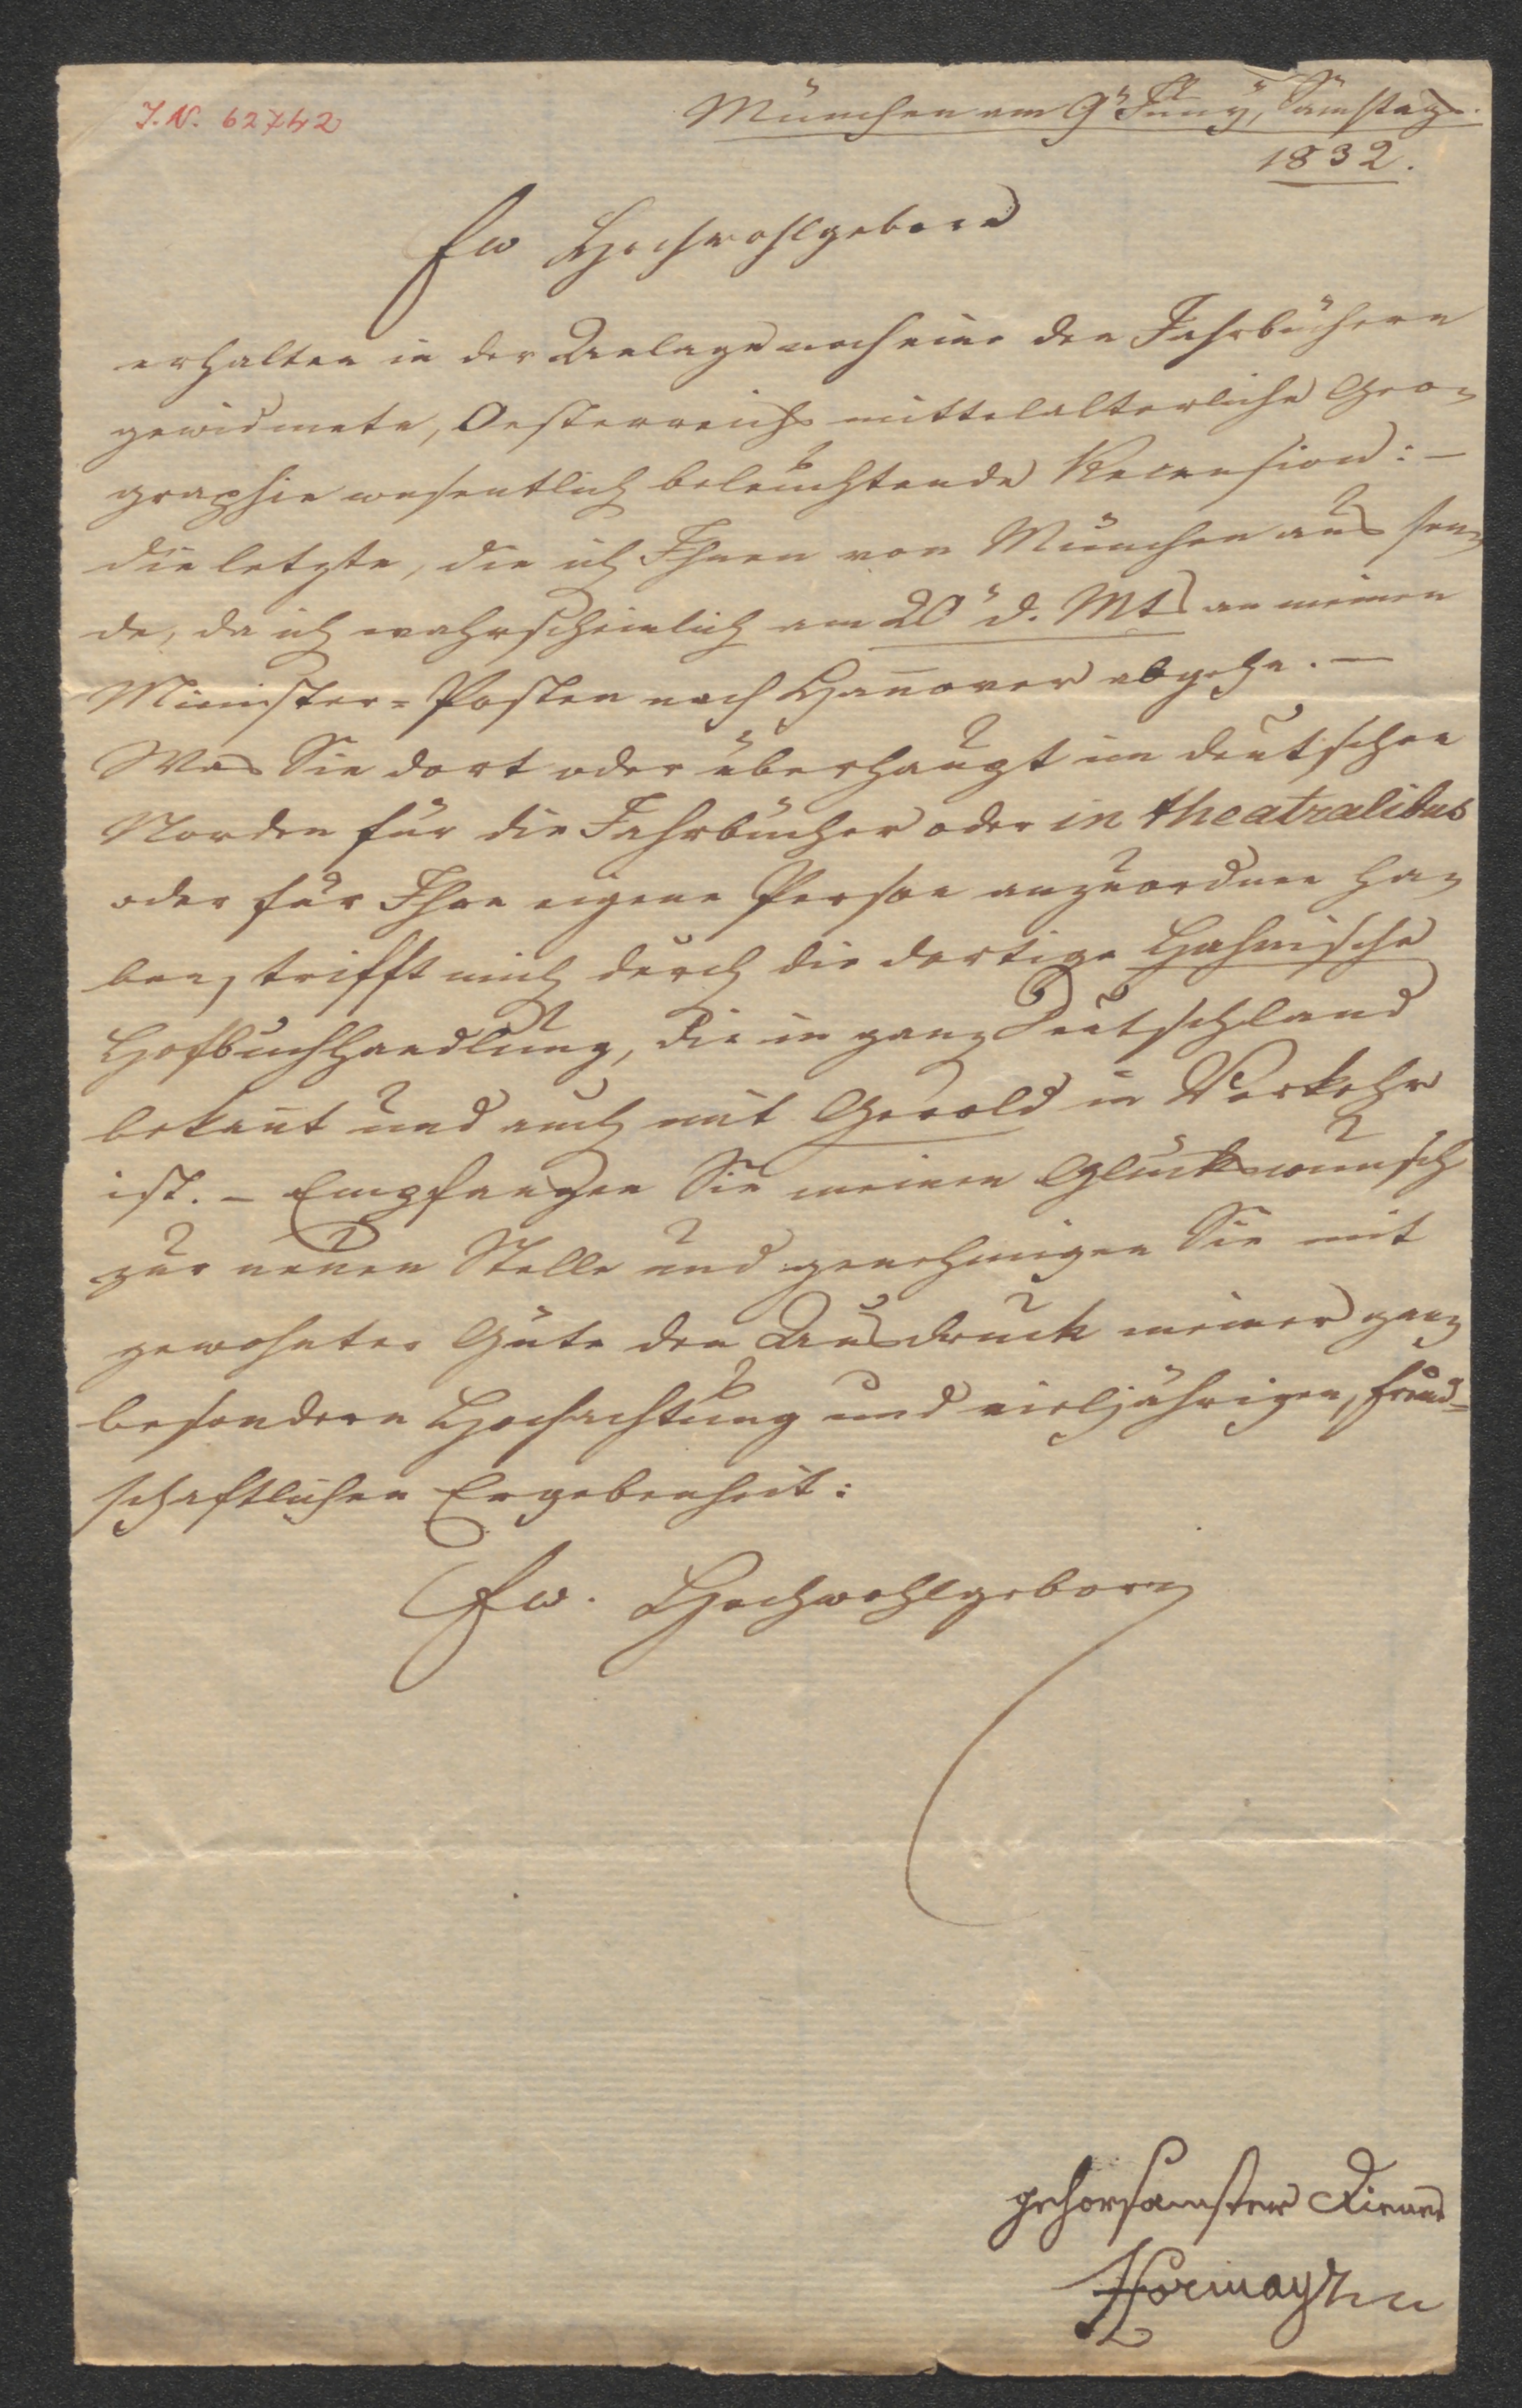 J. N. 62742
München am 9" Juny, Samstag.
1832.
Ew Hochwohlgeborn
erhalten in der Anlage noch eine den Jahrbüchern
gewidmete, Oesterreichs mittelalterliche Geo-
graphie wesentlich beleuchtende Recension: –
die letzte, die ich Ihnen von München aus sen-
de, da ich wahrscheinlich am 20" d. Mts an meinen
Minister-Posten nach Hanover abgehe. –
Was Sie dort oder überhaupt im deutschen
Norden für die Jahrbücher oder in theatralibus
oder für Ihre eigene Person anzuordnen ha-
ben, trifft mich durch die dortige Hahnische
Hofbuchhandlung, die in ganz Deutschland
bekannt und auch mit Gerold in Verkehr
ist. – Empfangen Sie meinen Glückwunsch
zur neuen Stelle und genehmigen Sie mit
gewohnter Güte den Ausdruck meiner ganz
besondern Hochachtung und vieljährigen, freund-
schaftlichen Ergebenheit:
Ew. Hochwohlgeborn
gehorsamster Diener
Hormayr